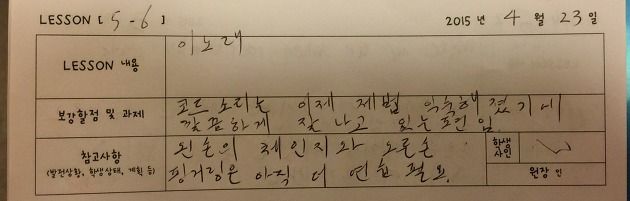 LESSON [ 5-6 ] 2015 년 4 월 23 일
LESSON 내용 이 노래
보강할점 및 과제 코드 소리는 이제 제법 익숙해졌기에
깔끔하게 잘 나고 있는 표현임.
참고사항 왼손의 체인지와 오른손 학생 사인
(발전상황, 학생상태, 계획 등) 핑거링은 아직 더 연습 필요. 원장 인